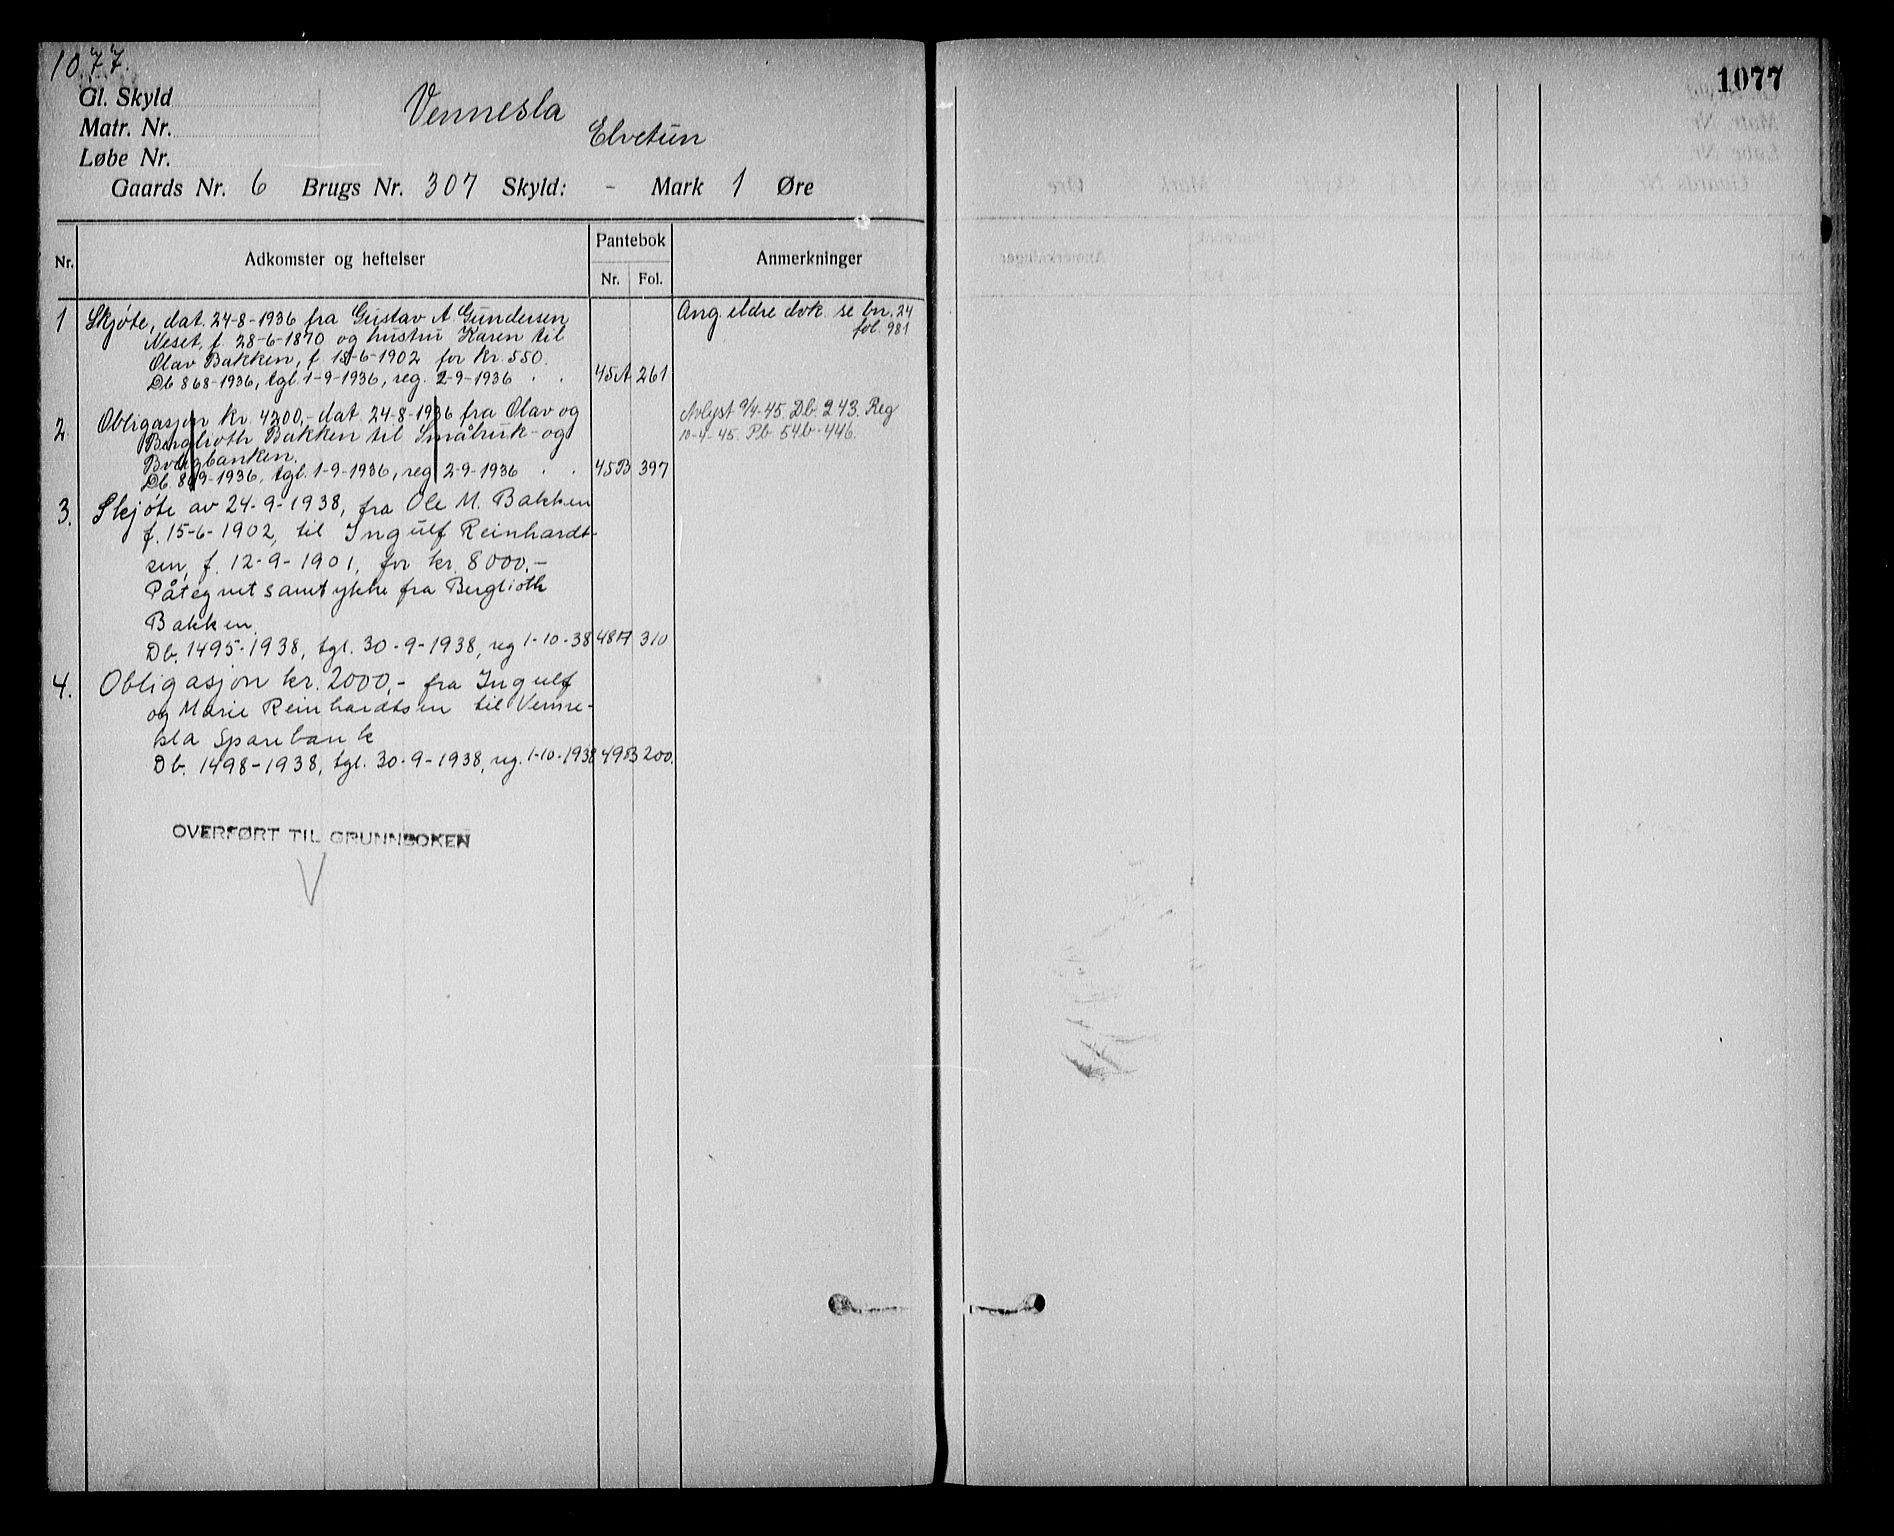 1077.
1077
Gl. Skyld
Matr. Nr.
Løbe Nr.
Vennesla
Elvetun
Gaards Nr. 6 Brugs Nr. 307 Skyld: - Mark 1 Øre
Nr. Adkomster og heftelser Pantebok Anmerkninger
Nr. Fol.
1 Skjøte, dat. 24-8-1936 fra Gustav A. Gundersen Ang. eldre dok. se bn. 24
Neset, f. 28-6-1870 og hustru Karen til fol. 981
Olav Bakken, f. 15-6-1902 for kr. 550.
Db 868-1936, tgl. 1-9-1936, reg. 2-9-1936 . . 45A 261
2 Obligasjon kr. 4200,- dat. 24-8-1936 fra Olav og Avlyst 9/4-45. Db. 243. Reg
Berglioth Bakken til Småbruk- og 10-4-45. Pb. 54b-446.
Boligbanken.
Db 869-1936, tgl. 1-9-1936, reg 2-9-1936 . . 45B 397
3. Skjøte av 24-9-1938, fra Ole M. Bakken
f. 15-6-1902, til Ingulf Reinhardt-
sen, f. 12-9-1901, for kr. 8000,-
Påtegnet samtykke fra Berglioth
Bakken.
Db. 1495-1938, tgl. 30-9-1938, reg 1-10-38 48A 310
4. Obligasjon kr. 2000,- fra Ingulf
og Marie Reinhardtsen til Vennes-
sla Sparebank
Db. 1498-1938, tgl. 30-9-1938, reg. 1-10-1938 49B 200.
OVERFØRT TIL GRUNNBOKEN
V